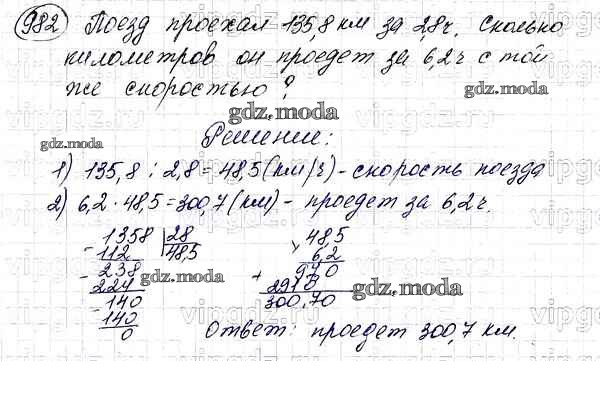 982 Поезд проехал 135,8 км за 2,8 ч. Сколько
километров он проедет за 6,2 ч с той
же скоростью?
gdz.moda
gdz.moda
Решение:
1) 135,8 : 2,8 = 48,5 (км/ч) - скорость поезда
2) 6,2 · 48,5 = 300,7 (км) - проедет за 6,2 ч.
1358 |28
- 112 48,5
- 238
224
- 140
- 140
0
48,5
× 6,2
970
+ 2910
300,70
gdz.moda
gdz.moda
Ответ: проедет 300,7 км.